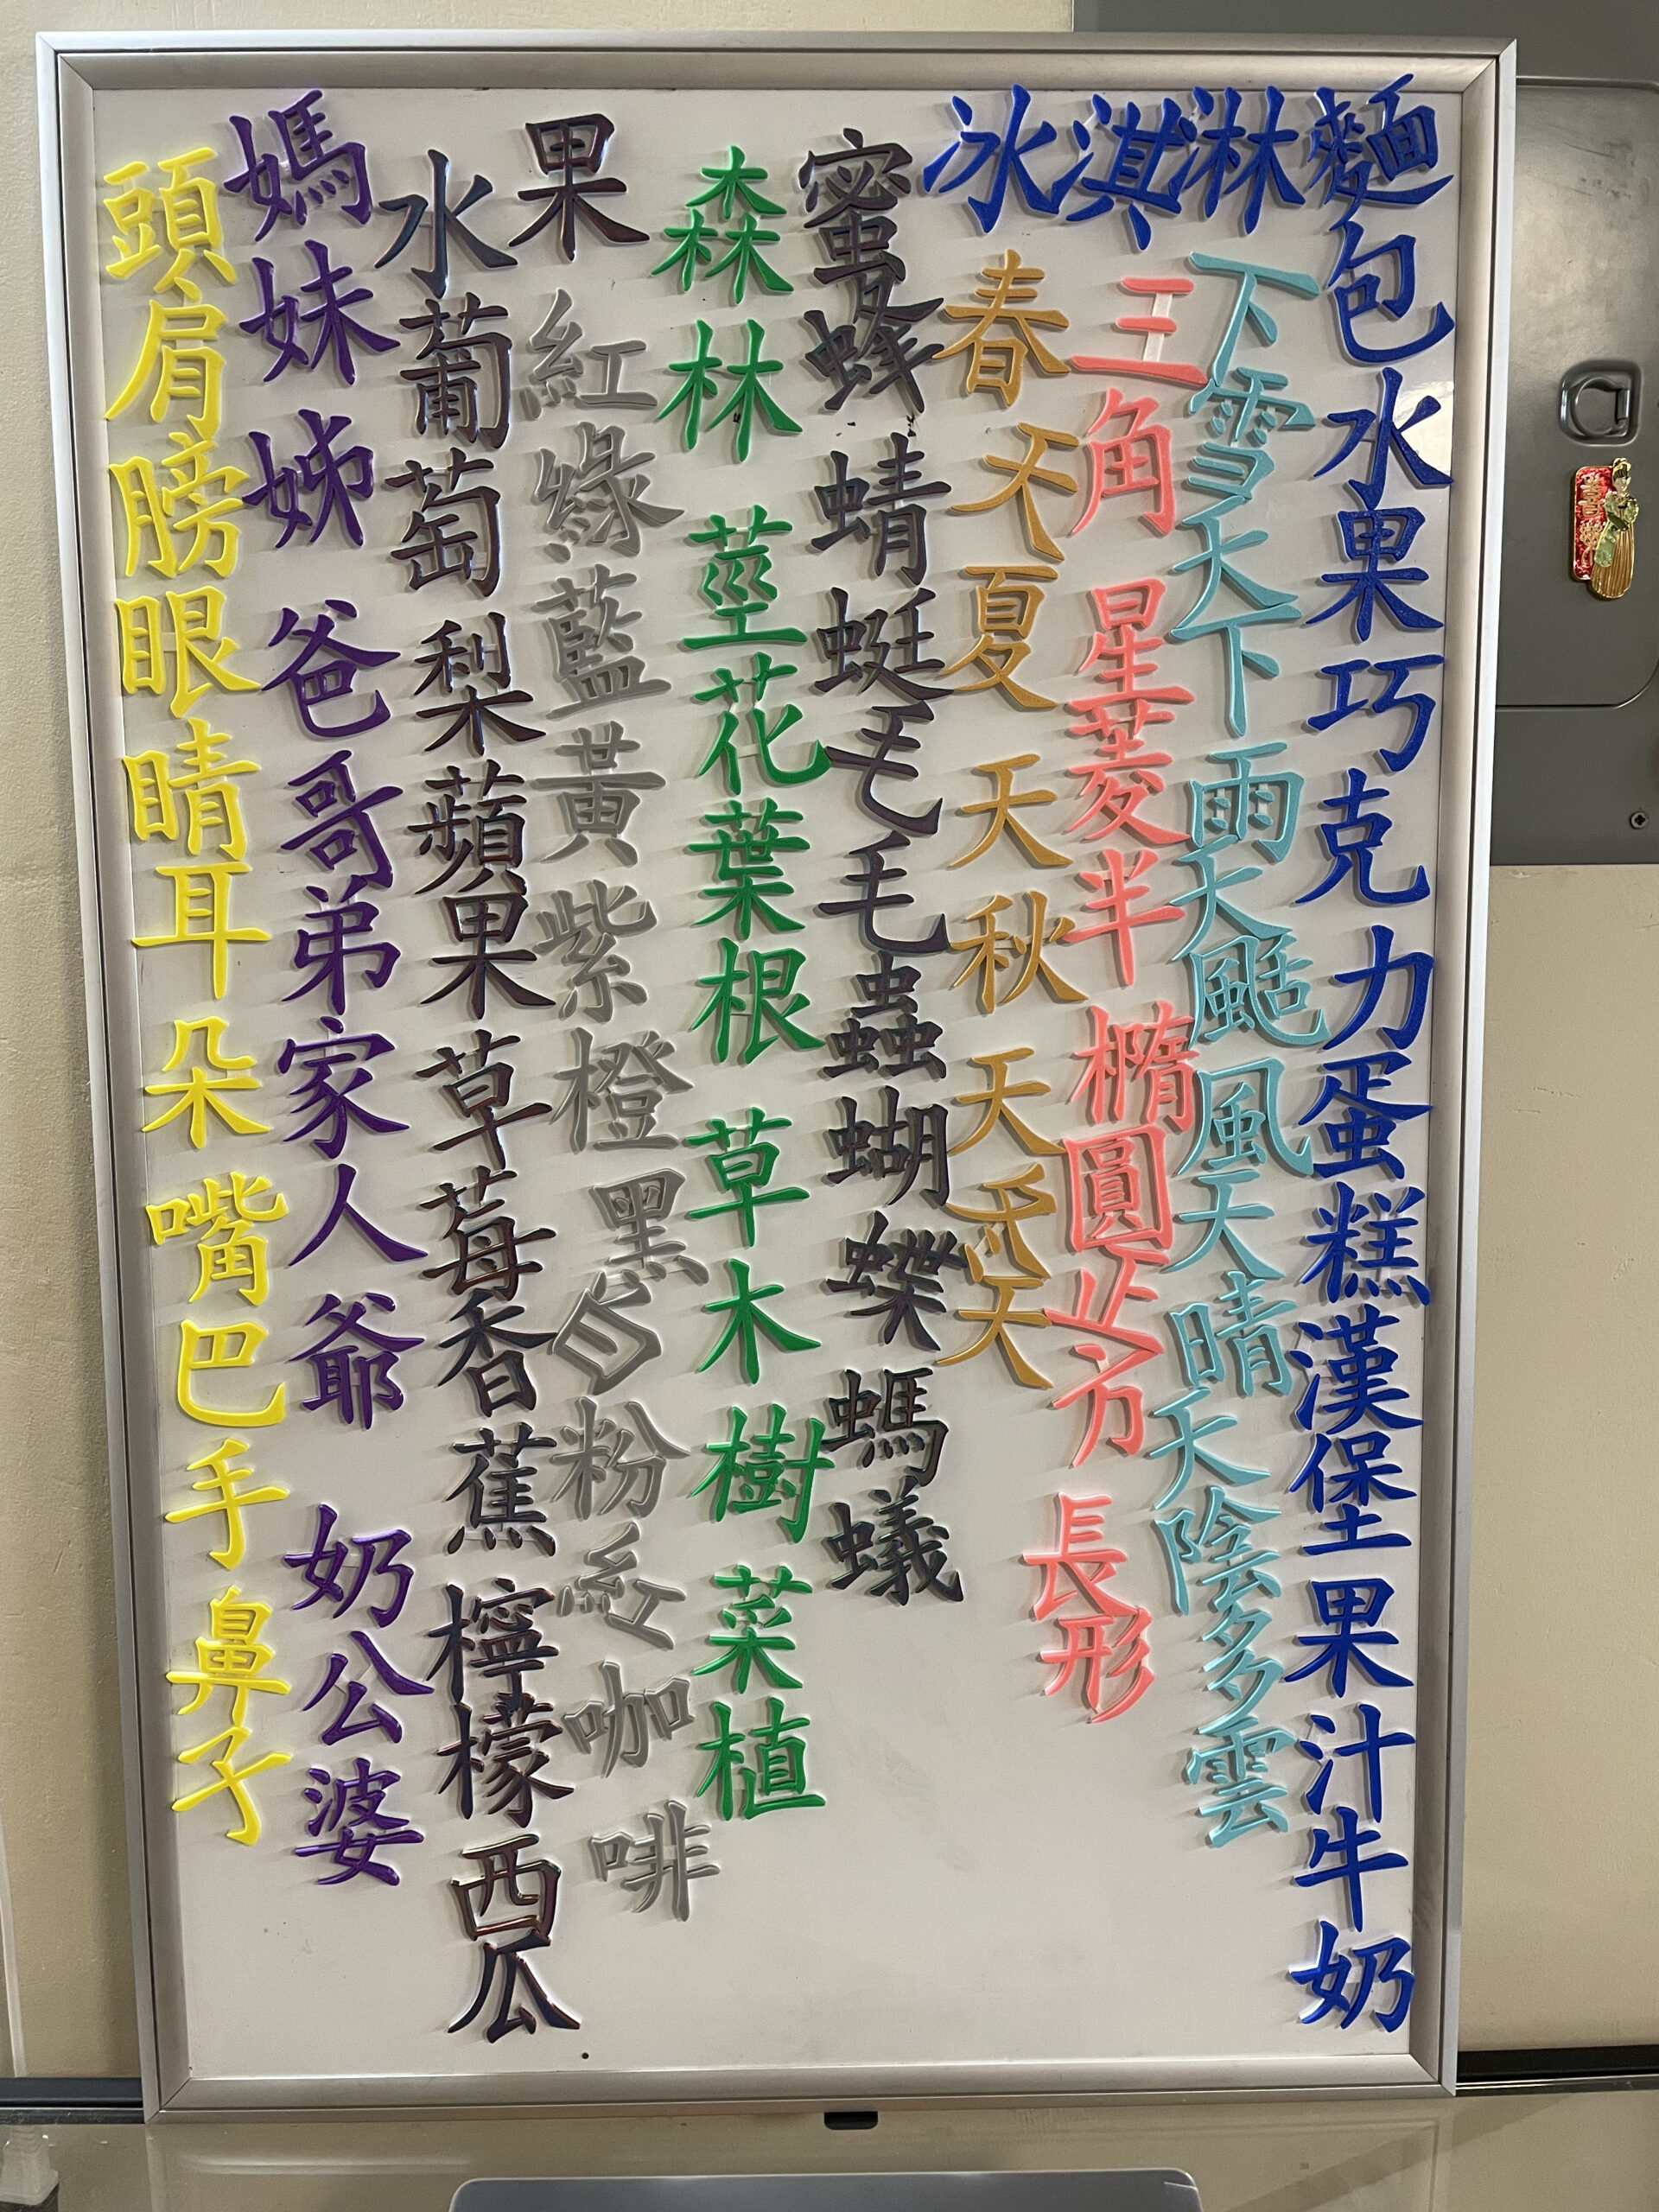 頭肩膀眼睛耳朵嘴巴手鼻子
媽妹姊爸哥弟家人爺奶公婆
水果
葡萄梨蘋果草莓香蕉檸檬西瓜
紅綠藍黃紫橙黑白粉紅咖啡
森林莖花葉根草木樹菜植
蜜蜂蜻蜓毛毛蟲蝴蝶螞蟻
冰淇淋
春天夏天秋天冬天
三角星菱半橢圓正方長形
下雪天下雨天颱風天晴天陰多雲
麵包水果巧克力蛋糕漢堡果汁牛奶